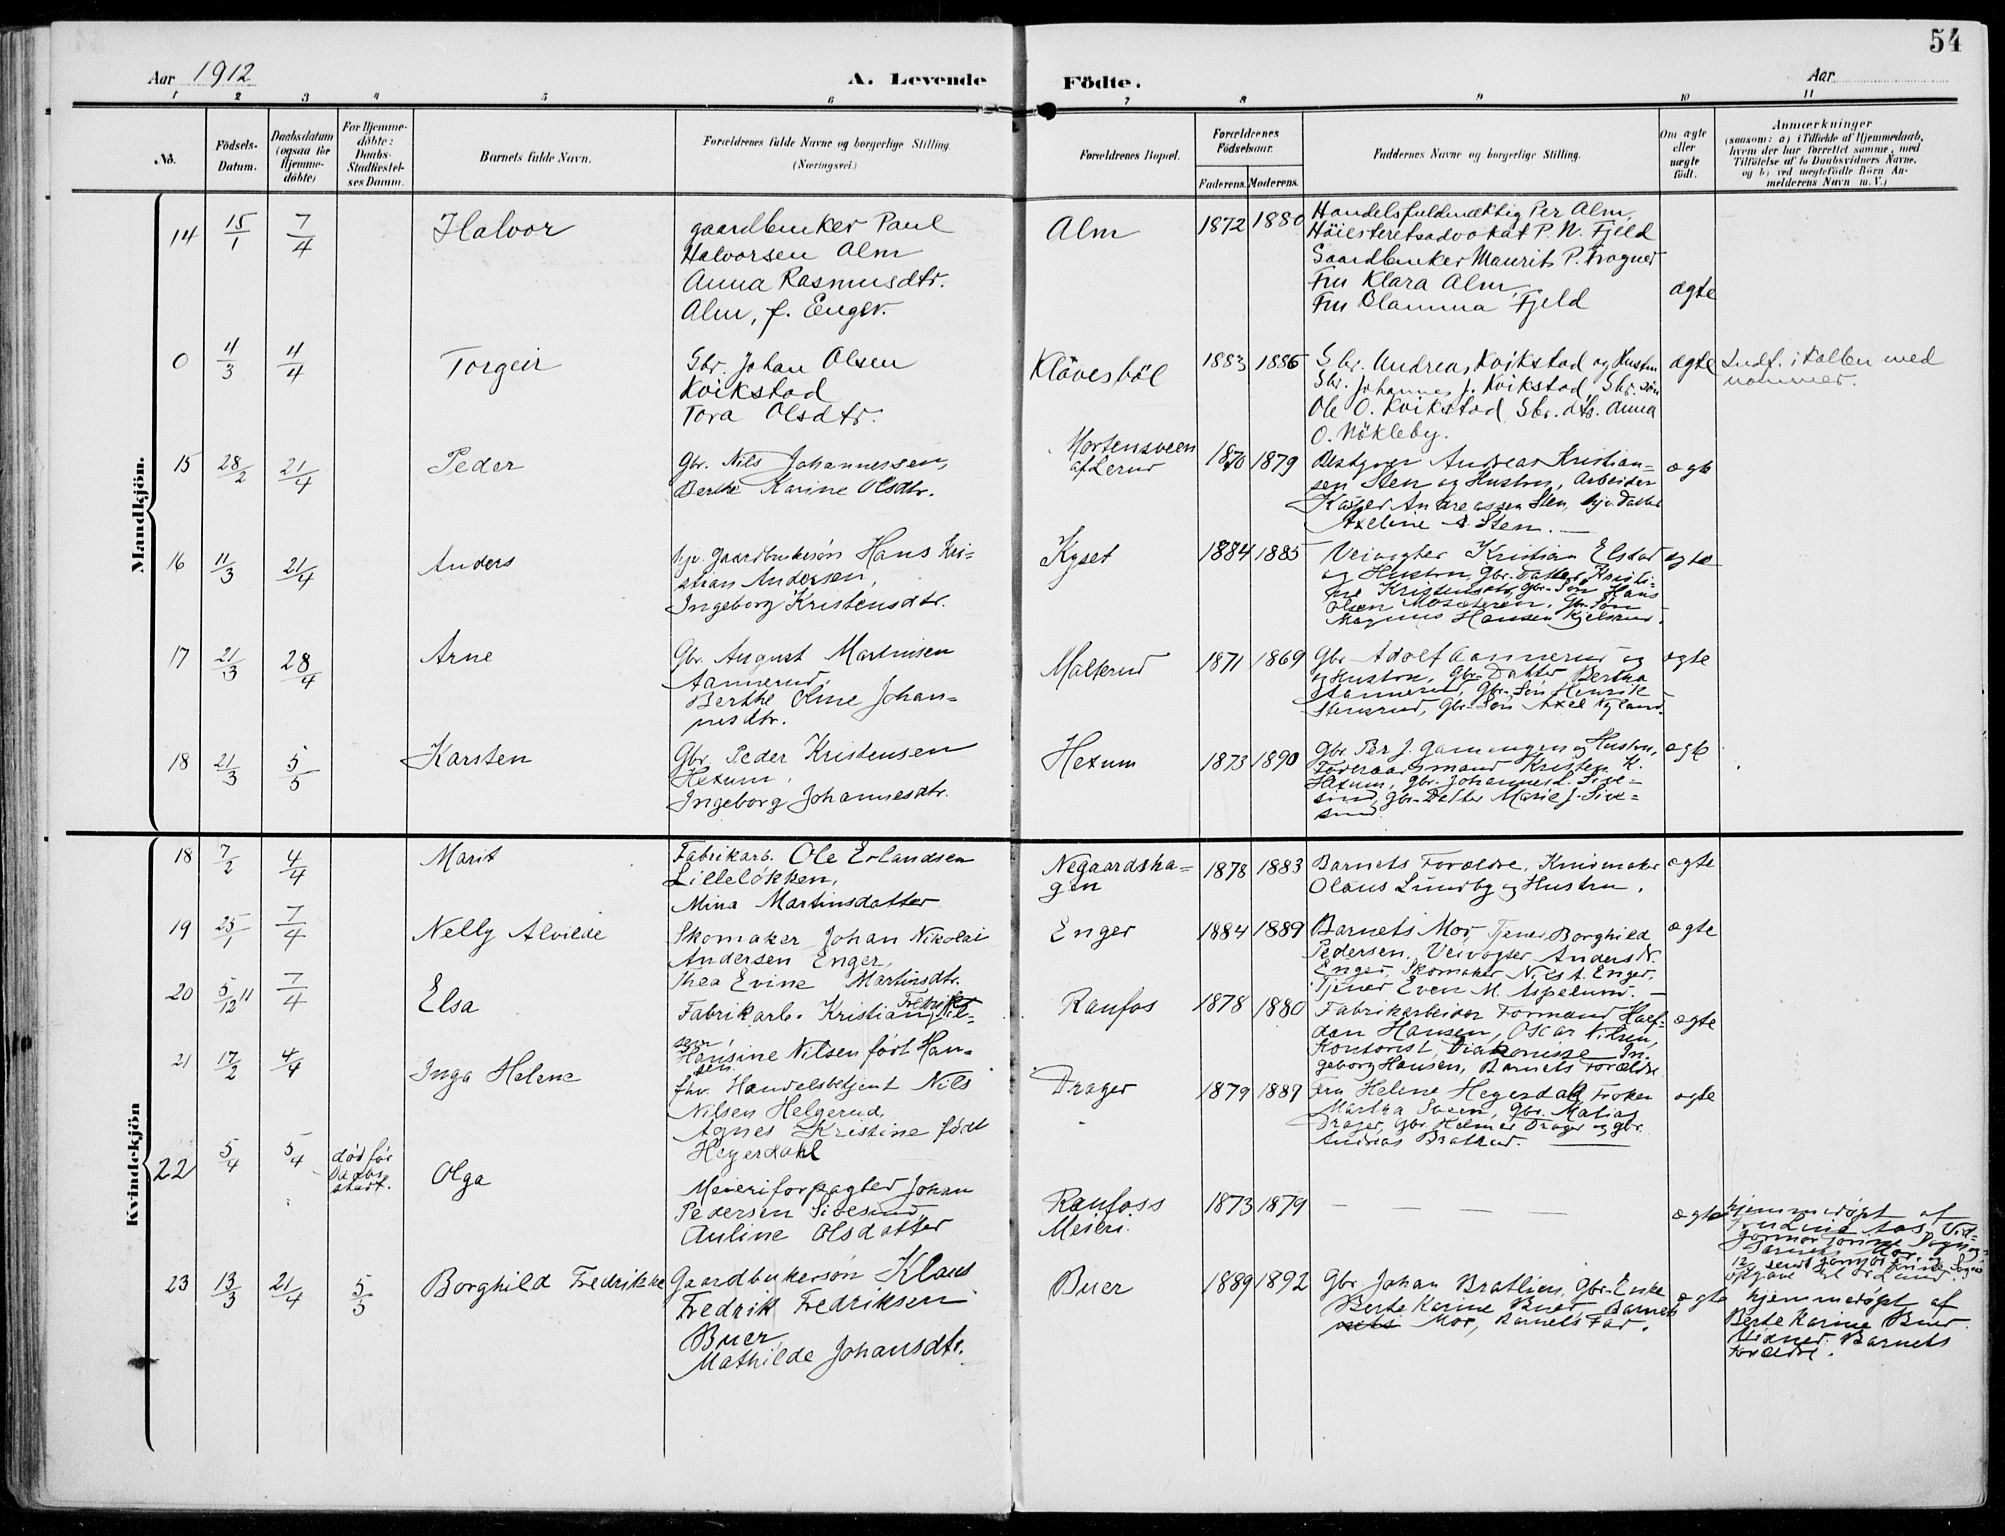 54
Aar 1912
A. Levende
Födte.
Aar
1 2 3 4 5 6 7 8 9 10 11
No.
Födsels-
Datum.
Daabsdatum
(ogsaa for
Hjemme-
döbte)
For Hjemme-
döbte:
Daabs-
Stadfæstel-
ses Datum.
Barnets fulde Navn.
Forældrenes fulde Navne og borgerlige Stilling.
(Næringsvei.)
Forældrenes Bopæl.
Forældrenes
Födselsaar.
Faderens. Moderens.
Faddernes Navne og borgerlige Stilling.
Om ægte
eller
uægte
födt.
Anmærkninger
(saasom: a) i Tilfælde af Hjemmedaab,
hvem der har forrettet samme, med
Tilföielse af to Daabsvidners Navne.
og b) ved uægtefödte Börn An-
melderens Navn m. V.)
Mandkjön.
14 15/1 7/4 Halvor
gaardbruker Paul
Halvorsen Alm
Anna Rasmusdtr.
Alm, f. Enger.
Alm 1872 1880
Handelsfuldmæktig Per Alm,
Høiesteretsadvokat P. N. Fjeld
Gaardbruker Maurits P. Frogner
Fru Klara Alm
Fru Fjeld
ægte
0 4/3 4/4 Torgeir
Gbr. Johan Olsen
Kvikstad
Tora Olsdtr.
Klövesböl 1883 1886
Gbr. Andreas Kvikstad og Hustru
Gbr. Johannes J. Kvikstad Gbr. søn
Ole O. Kvikstad Gbr. dtr. Anna
O. Nökleby.
ægte
Indf. i Kolben med
nommer.
15 28/2 21/4 Peder
Gbr. Nils Johannessen,
Berthe Karine Olsdtr.
Mortensveen
af Lerud
1870 1879
Bestyrer Andreas Kristian-
sen Sten og Hustru, Arbeider
Kasper Andreassen Sten, hjv. Datter
Axeline A. Sten.
ægte
16 11/3 21/4 Anders
hjv. gaardbrukersøn Hans Kri-
stian Andersen,
Ingeborg Kristensdtr.
Kyset 1884 1885
Veivogter Kristian Elstad
og Hustru, Gbr. Datter Kristi-
ne Kristensdtr, Gbr. Søn Hans
Olsen, Gbr. Søn
Magnus Hansen Kjelsrud.
ægte
17 21/3 28/4 Arne
Gbr. August Martinsen
Aannerud,
Berthe Oline Johan-
nesdtr.
Malterud 1871 1869
Gbr. Adolf Aannerud og
Hustru, Gbr. Datter Bertha
Aannerud, Gbr. Søn Henrik
Stensrud, Gbr. Søn Axel Nyland.
ægte
18 21/3 5/5 Karsten
Gbr. Peder Kristensen
Hexum,
Ingeborg Johannesdtr.
Hexum 1873 1890
Gbr. Per J. og Hustru,
Føderaadsmand Kristen K.
Hexum, Gbr. Johannes L. Sive-
sind, Gbr. Datter Marie J. Sive-
sind.
ægte
Kvindekjön
18 7/2 4/4 Marit
Fabrikarb. Ole Erlandsen
Lilleløkken,
Mina Martinsdatter
Negaardsha-
gen
1878 1883
Barnets Forældre, Knivmaker
Olaus Lundby og Hustru.
ægte
19 25/1 7/4 Nelly Alvilde
Skomaker Johan Nikolai
Andersen Enger,
Thea Evine Martinsdtr.
Enger 1884 1889
Barnets Mor, Tjener Borghild
Pedersen, Veivogter Anders N.
Enger, Skomaker Nils A. Enger,
Tjener Even M. Aspelund.
ægte
20 5/12 11 7/4 Elsa
Fabrikarb. Kristian Fredrik Nil-
sen,
Hansine Nilsen født Han-
sen
Raufos 1878 1880
Fabrikarbeider Formand Half-
dan Hansen, Oscar Nilsen,
Kontorist, Diakonisse In-
geborg Hansen, Barnets Forældre
ægte
21 17/2 4/4 Inga Helene
fhv. Handelsbetjent Nils
Nilsen Helgerud,
Agnes Kristine født
Heyerdahl
Drager 1879 1889
Fru Helene Heyerdahl, Frøken
Martha Sveen, Gbr. Matias
Drager, Gbr. Helmer Drager og gbr.
Andreas Bratrud.
ægte
22 5/4 5/4 død før
Daabs
stadf.
Olga
Meieriforpagter Johan
Pedersen Sivesind,
Auline Olsdatter
Raufoss
Meieri.
1873 1879 — — — —
ægte
hjemmedøpt af
Barnets Mor, og
23 13/3 21/4 5/5 Borghild Fredrikke
Gaardbrukersøn Klaus
Fredrik Fredriksen
Buer,
Mathilde Johansdtr.
Buer 1889 1892
Gbr. Johan Bratlien, Gbr. Enke
Berte Karine Buer, Barnets
Mor, Barnets Far.
ægte
hjemmedøpt af
Berte Karine Buer.
Vidner: Barnets
Forældre.